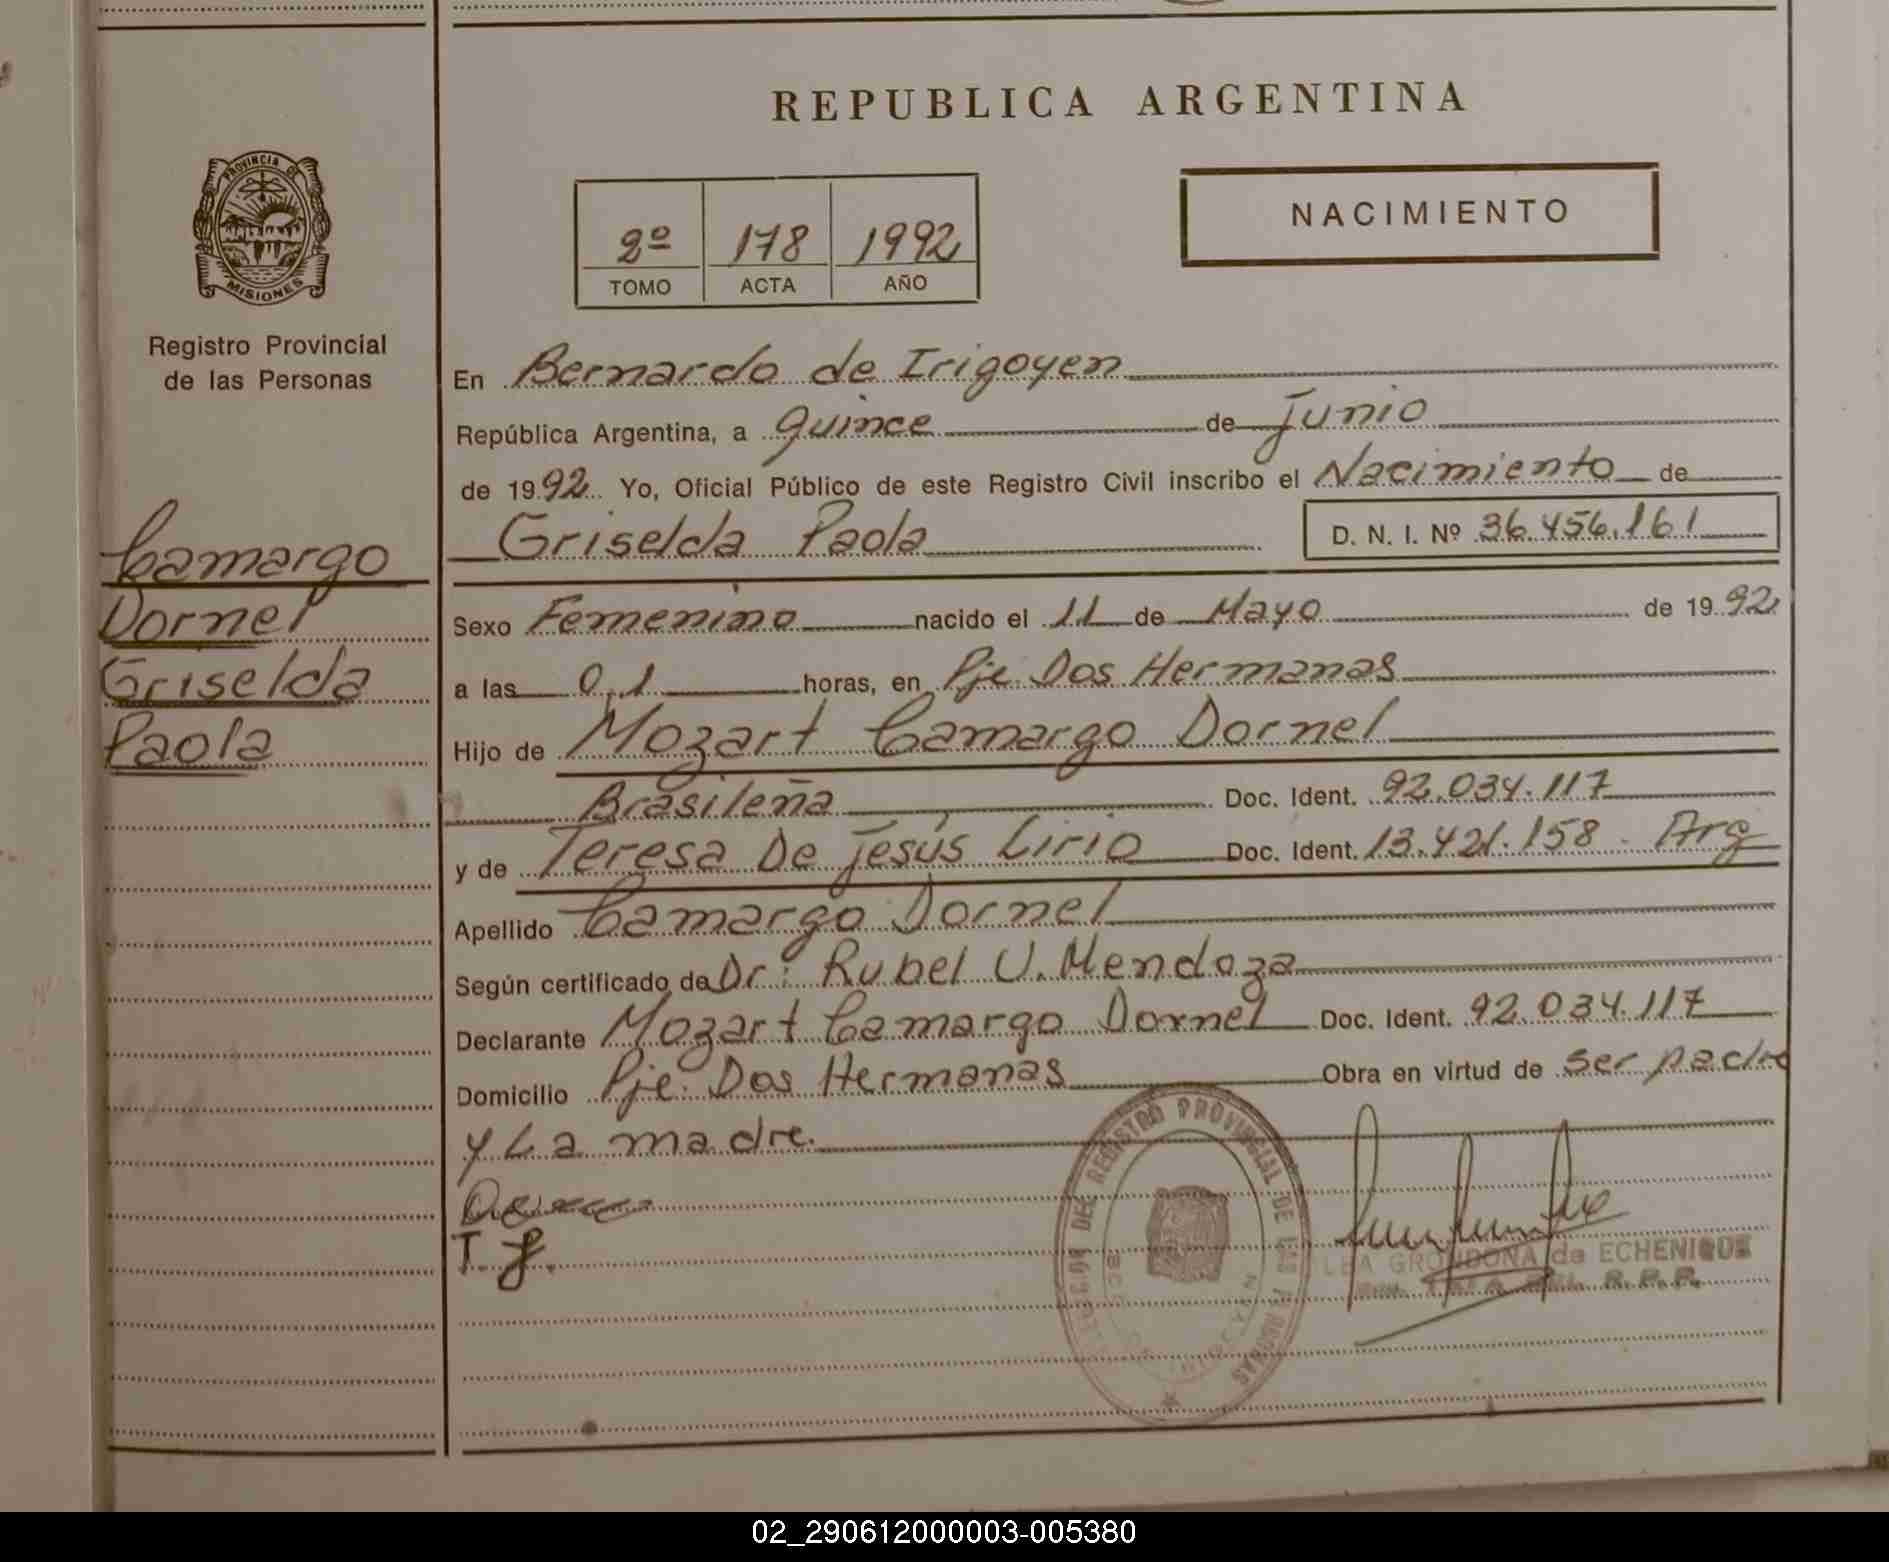 REPUBLICA ARGENTINA
PROVINCIA DE
MISIONES
Registro Provincial
de las Personas
2º 178 1992
TOMO ACTA AÑO
NACIMIENTO
Camargo
Dornel
Griselda
Paola
En Bernardo de Irigoyen
República Argentina, a quince de Junio
de 1992 Yo, Oficial Público de este Registro Civil inscribo el Nacimiento de
Griselda Paola D. N. I. Nº 36.456.161
Sexo Femenino nacido el 11 de Mayo de 1992
a las 0,1 horas, en Pje. Dos Hermanas
Hijo de Mozart Camargo Dornel
Brasileña Doc. Ident. 92.034.117
y de Teresa De Jesús Lirio Doc. Ident. 13.421.158 - Arg
Apellido Camargo Dornel
Según certificado de Dr: Rubel U. Mendoza
Declarante Mozart Camargo Dornel Doc. Ident. 92.034.117
Domicilio Pje. Dos Hermanas Obra en virtud de ser padre
y La madre.
T. J.
DEL REGISTRO PROVINCIAL DE LAS PERSONAS
GRONDONA de ECHENIQUE
R. P. P.
02_290612000003-005380